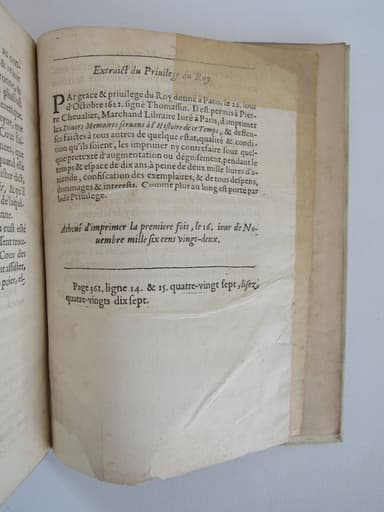 Extraict du Priuilege du Roy.
PAr grace & priuilege du Roy donné à Paris, le 22. iour
d'Octobre 1622. signé Thomassin. Il est permis à Pier-
re Cheualier, Marchand Libraire Iuré à Paris, d'imprimer
les Diuers Memoires seruans à l'Histoire de ce Temps, & deffen-
ses faictes à tous autres de quelque estat, qualité & condi-
tion qu'ils soient, les imprimer ny contrefaire souz quel-
que pretexte d'augmentation ou déguisement, pendant le
temps & espace de dix ans, à peine de deux mille liures d'a-
mende, confiscation des exemplaires, & de tous despens,
dommages & interests. Comme plus au long est porté par
lede Priuilege.
Acheué d'imprimer la premiere fois, le 16. iour de No-
uembre mille six cens vingt-deux.
Page 361, ligne 14. & 15. quatre-vingt sept, lisez,
quatre-vingts dix sept.